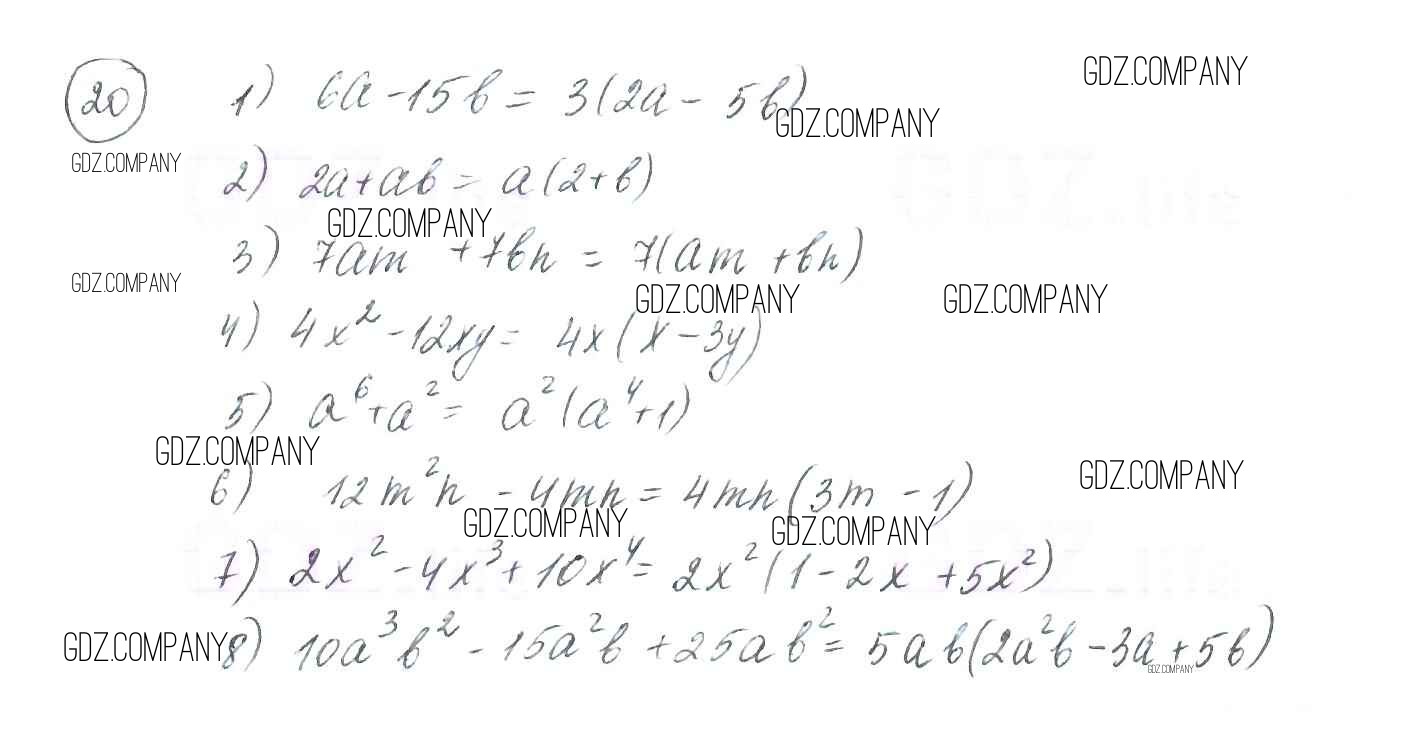 20 1) 6a - 15b = 3(2a - 5b)
GDZ.COMPANY
GDZ.COMPANY
GDZ.COMPANY
2) 2a + ab = a(2 + b)
GDZ.COMPANY
3) 7am + 7bn = 7(am + bn)
GDZ.COMPANY
GDZ.COMPANY GDZ.COMPANY
4) 4x² - 12xy = 4x(x - 3y)
5) a⁶ + a² = a²(a⁴ + 1)
GDZ.COMPANY
GDZ.COMPANY
6) 12m²n - 4mn = 4mn(3m - 1)
GDZ.COMPANY GDZ.COMPANY
7) 2x² - 4x³ + 10x⁴ = 2x²(1 - 2x + 5x²)
GDZ.COMPANY
8) 10a³b² - 15a²b + 25ab² = 5ab(2a²b - 3a + 5b)
GDZ.COMPANY